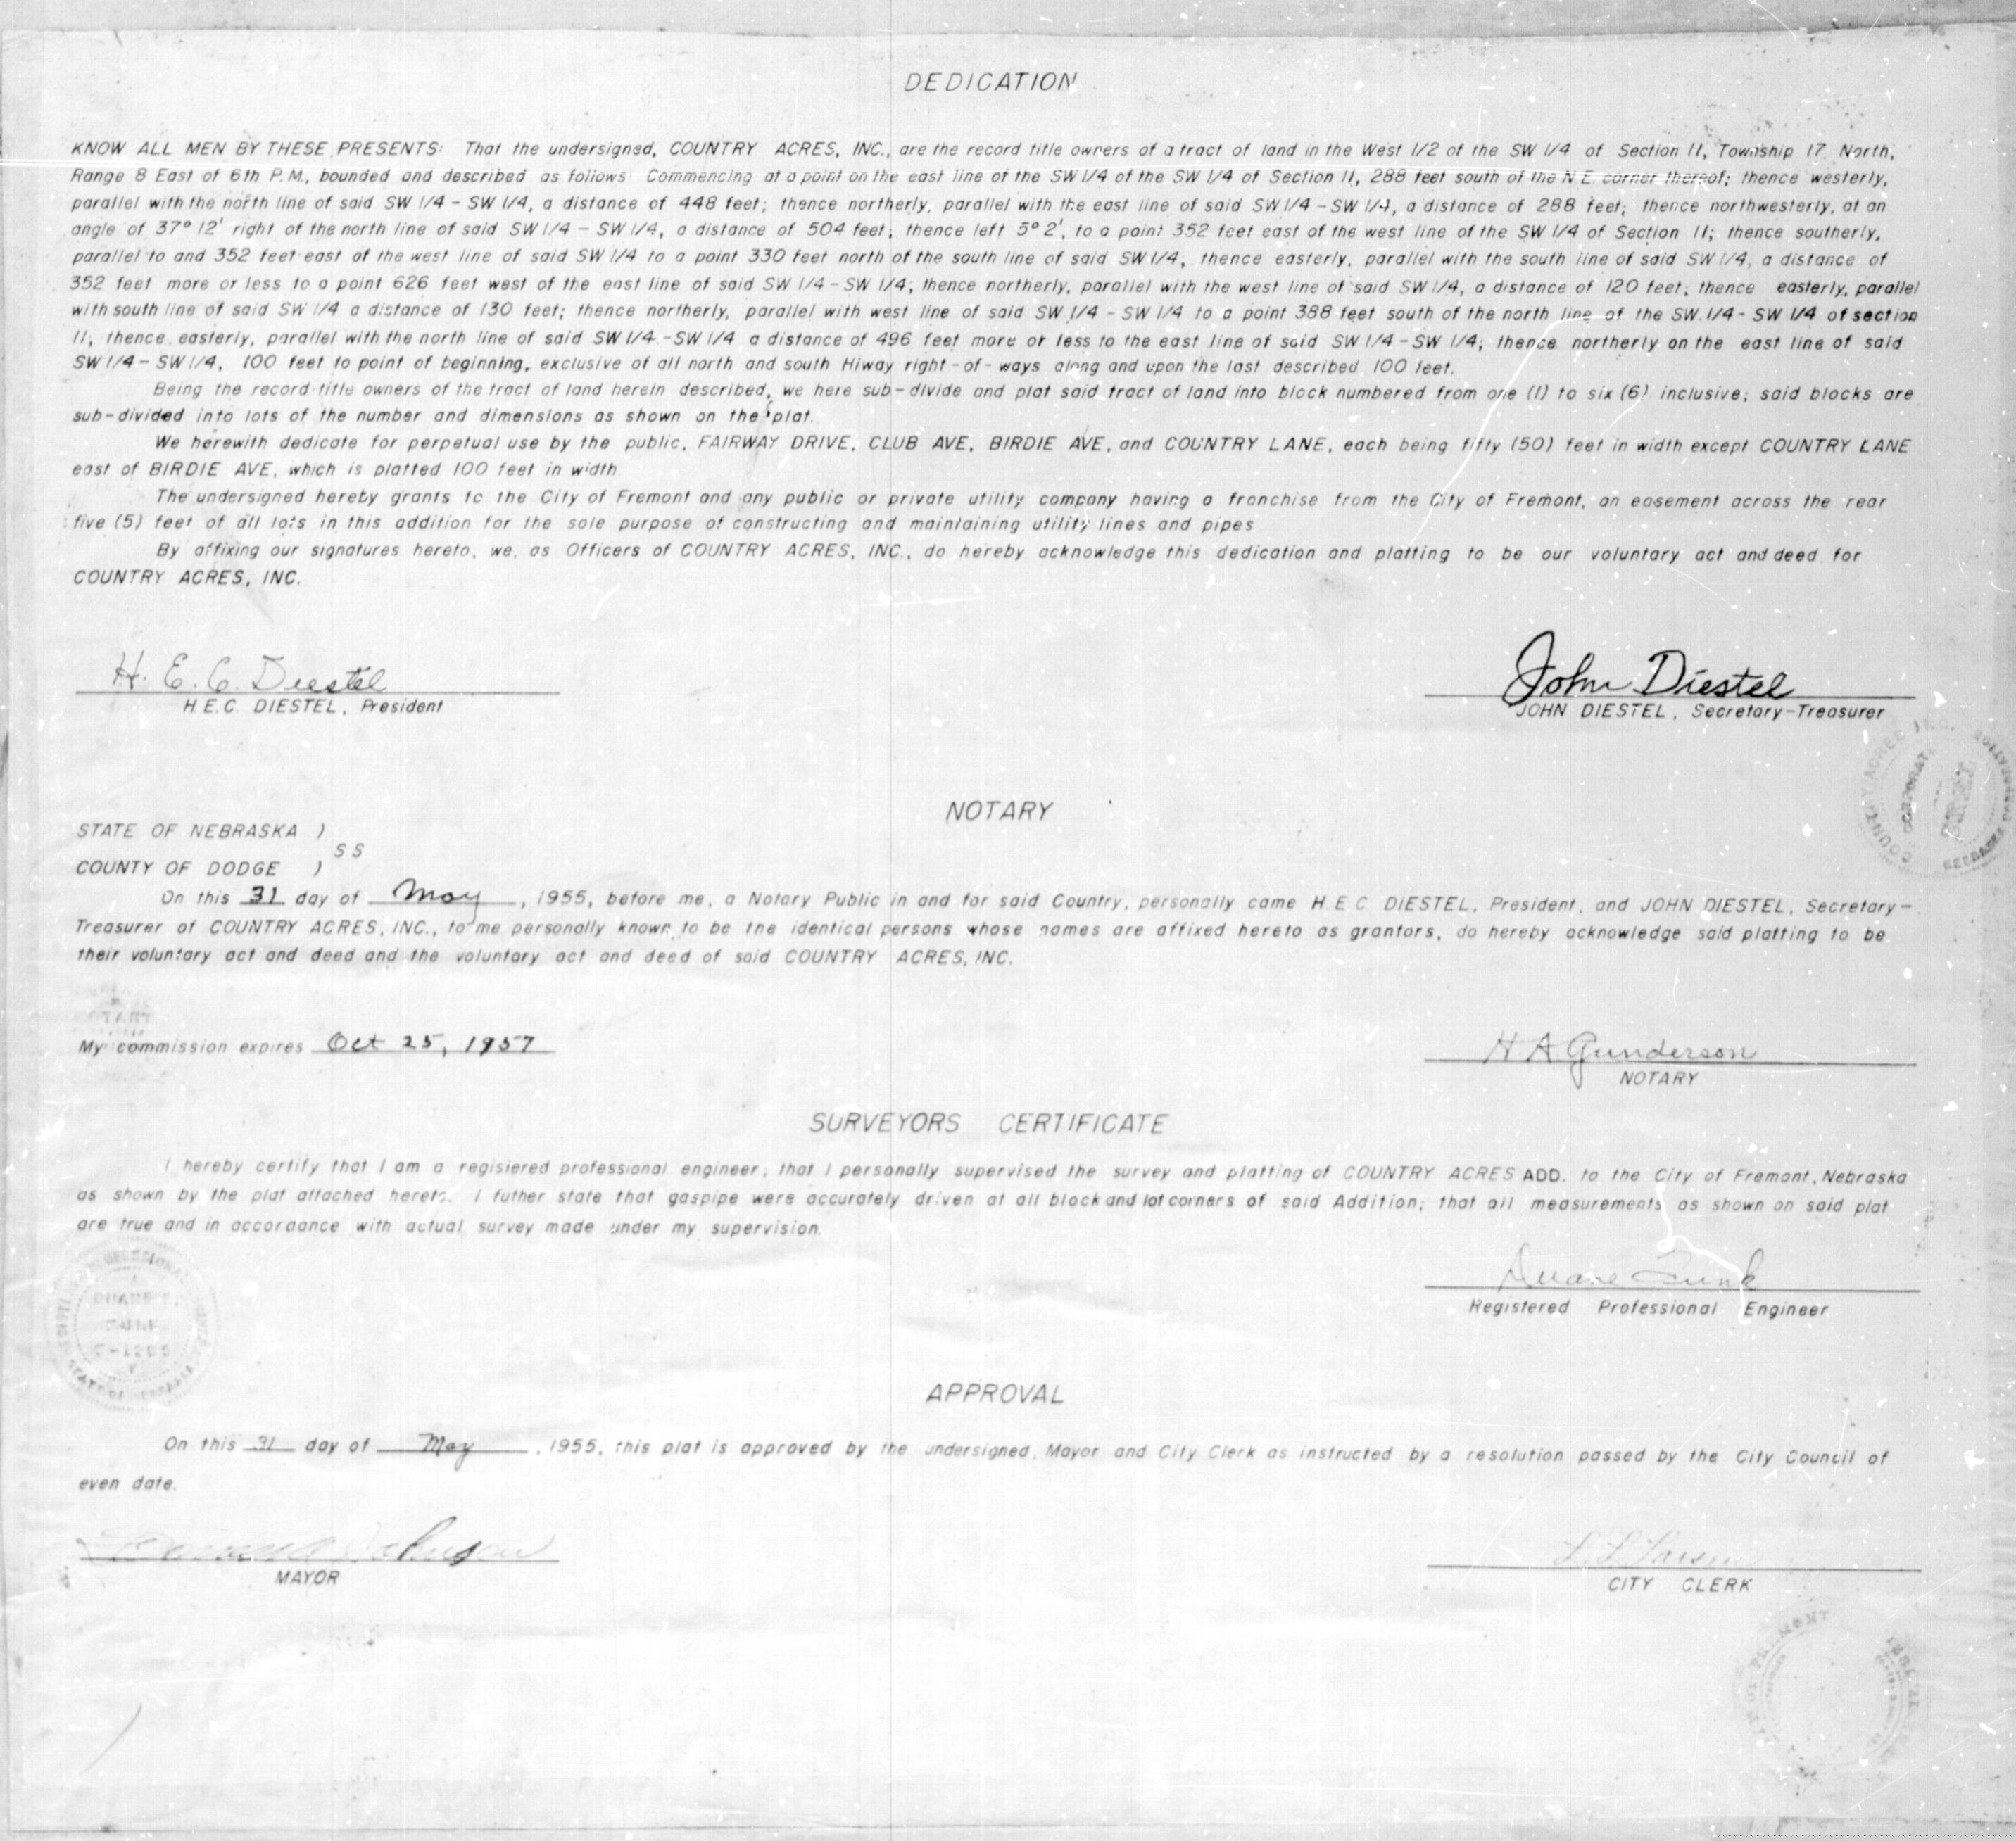 DEDICATION
KNOW ALL MEN BY THESE PRESENTS: That the undersigned, COUNTRY ACRES, INC., are the record title owners of a tract of land in the West 1/2 of the SW 1/4 of Section 11, Township 17 North,
Range 8 East of 6th P.M., bounded and described as follows: Commencing at a point on the east line of the SW 1/4 of the SW 1/4 of Section 11, 288 feet south of the N.E. corner thereof; thence westerly,
parallel with the north line of said SW 1/4 - SW 1/4, a distance of 448 feet; thence northerly, parallel with the east line of said SW 1/4 - SW 1/4, a distance of 288 feet; thence northwesterly, at an
angle of 37° 12' right of the north line of said SW 1/4 - SW 1/4, a distance of 504 feet; thence left 5° 2', to a point 352 feet east of the west line of the SW 1/4 of Section 11; thence southerly,
parallel to and 352 feet east of the west line of said SW 1/4 to a point 330 feet north of the south line of said SW 1/4; thence easterly, parallel with the south line of said SW 1/4, a distance of
352 feet more or less to a point 626 feet west of the east line of said SW 1/4 - SW 1/4; thence northerly, parallel with the west line of said SW 1/4, a distance of 120 feet; thence easterly, parallel
with south line of said SW 1/4 a distance of 130 feet; thence northerly, parallel with west line of said SW 1/4 - SW 1/4 to a point 388 feet south of the north line of the SW 1/4 - SW 1/4 of section
11; thence easterly, parallel with the north line of said SW 1/4 - SW 1/4 a distance of 496 feet more or less to the east line of said SW 1/4 - SW 1/4; thence northerly on the east line of said
SW 1/4 - SW 1/4, 100 feet to point of beginning, exclusive of all north and south Hiway right-of-ways along and upon the last described 100 feet.
Being the record title owners of the tract of land herein described, we here sub-divide and plat said tract of land into block numbered from one (1) to six (6) inclusive; said blocks are
sub-divided into lots of the number and dimensions as shown on the plat.
We herewith dedicate for perpetual use by the public, FAIRWAY DRIVE, CLUB AVE, BIRDIE AVE, and COUNTRY LANE, each being fifty (50) feet in width except COUNTRY LANE
east of BIRDIE AVE, which is platted 100 feet in width
The undersigned hereby grants to the City of Fremont and any public or private utility company having a franchise from the City of Fremont, an easement across the rear
five (5) feet of all lots in this addition for the sole purpose of constructing and maintaining utility lines and pipes
By affixing our signatures hereto, we, as Officers of COUNTRY ACRES, INC., do hereby acknowledge this dedication and platting to be our voluntary act and deed for
COUNTRY ACRES, INC.
H. E. C. Diestel
H.E.C. DIESTEL, President
John Diestel
JOHN DIESTEL, Secretary-Treasurer
COUNTRY ACRES INC.
CORPORATE
SEAL
NEBRASKA
NOTARY
STATE OF NEBRASKA )
SS
COUNTY OF DODGE )
On this 31 day of May, 1955, before me, a Notary Public in and for said Country, personally came H.E.C. DIESTEL, President, and JOHN DIESTEL, Secretary-
Treasurer of COUNTRY ACRES, INC., to me personally known to be the identical persons whose names are affixed hereto as grantors, do hereby acknowledge said platting to be
their voluntary act and deed and the voluntary act and deed of said COUNTRY ACRES, INC.
My commission expires Oct 25, 1957
H A Gunderson
NOTARY
SURVEYORS CERTIFICATE
I hereby certify that I am a registered professional engineer; that I personally supervised the survey and platting of COUNTRY ACRES ADD. to the City of Fremont, Nebraska
as shown by the plat attached hereto. I futher state that gaspipe were accurately driven at all block and lot corners of said Addition; that all measurements as shown on said plat
are true and in accordance with actual survey made under my supervision.
Duane Funk
Registered Professional Engineer
APPROVAL
On this 31 day of May, 1955, this plat is approved by the undersigned, Mayor and City Clerk as instructed by a resolution passed by the City Council of
even date.
Johnson
MAYOR
Larsen
CITY CLERK